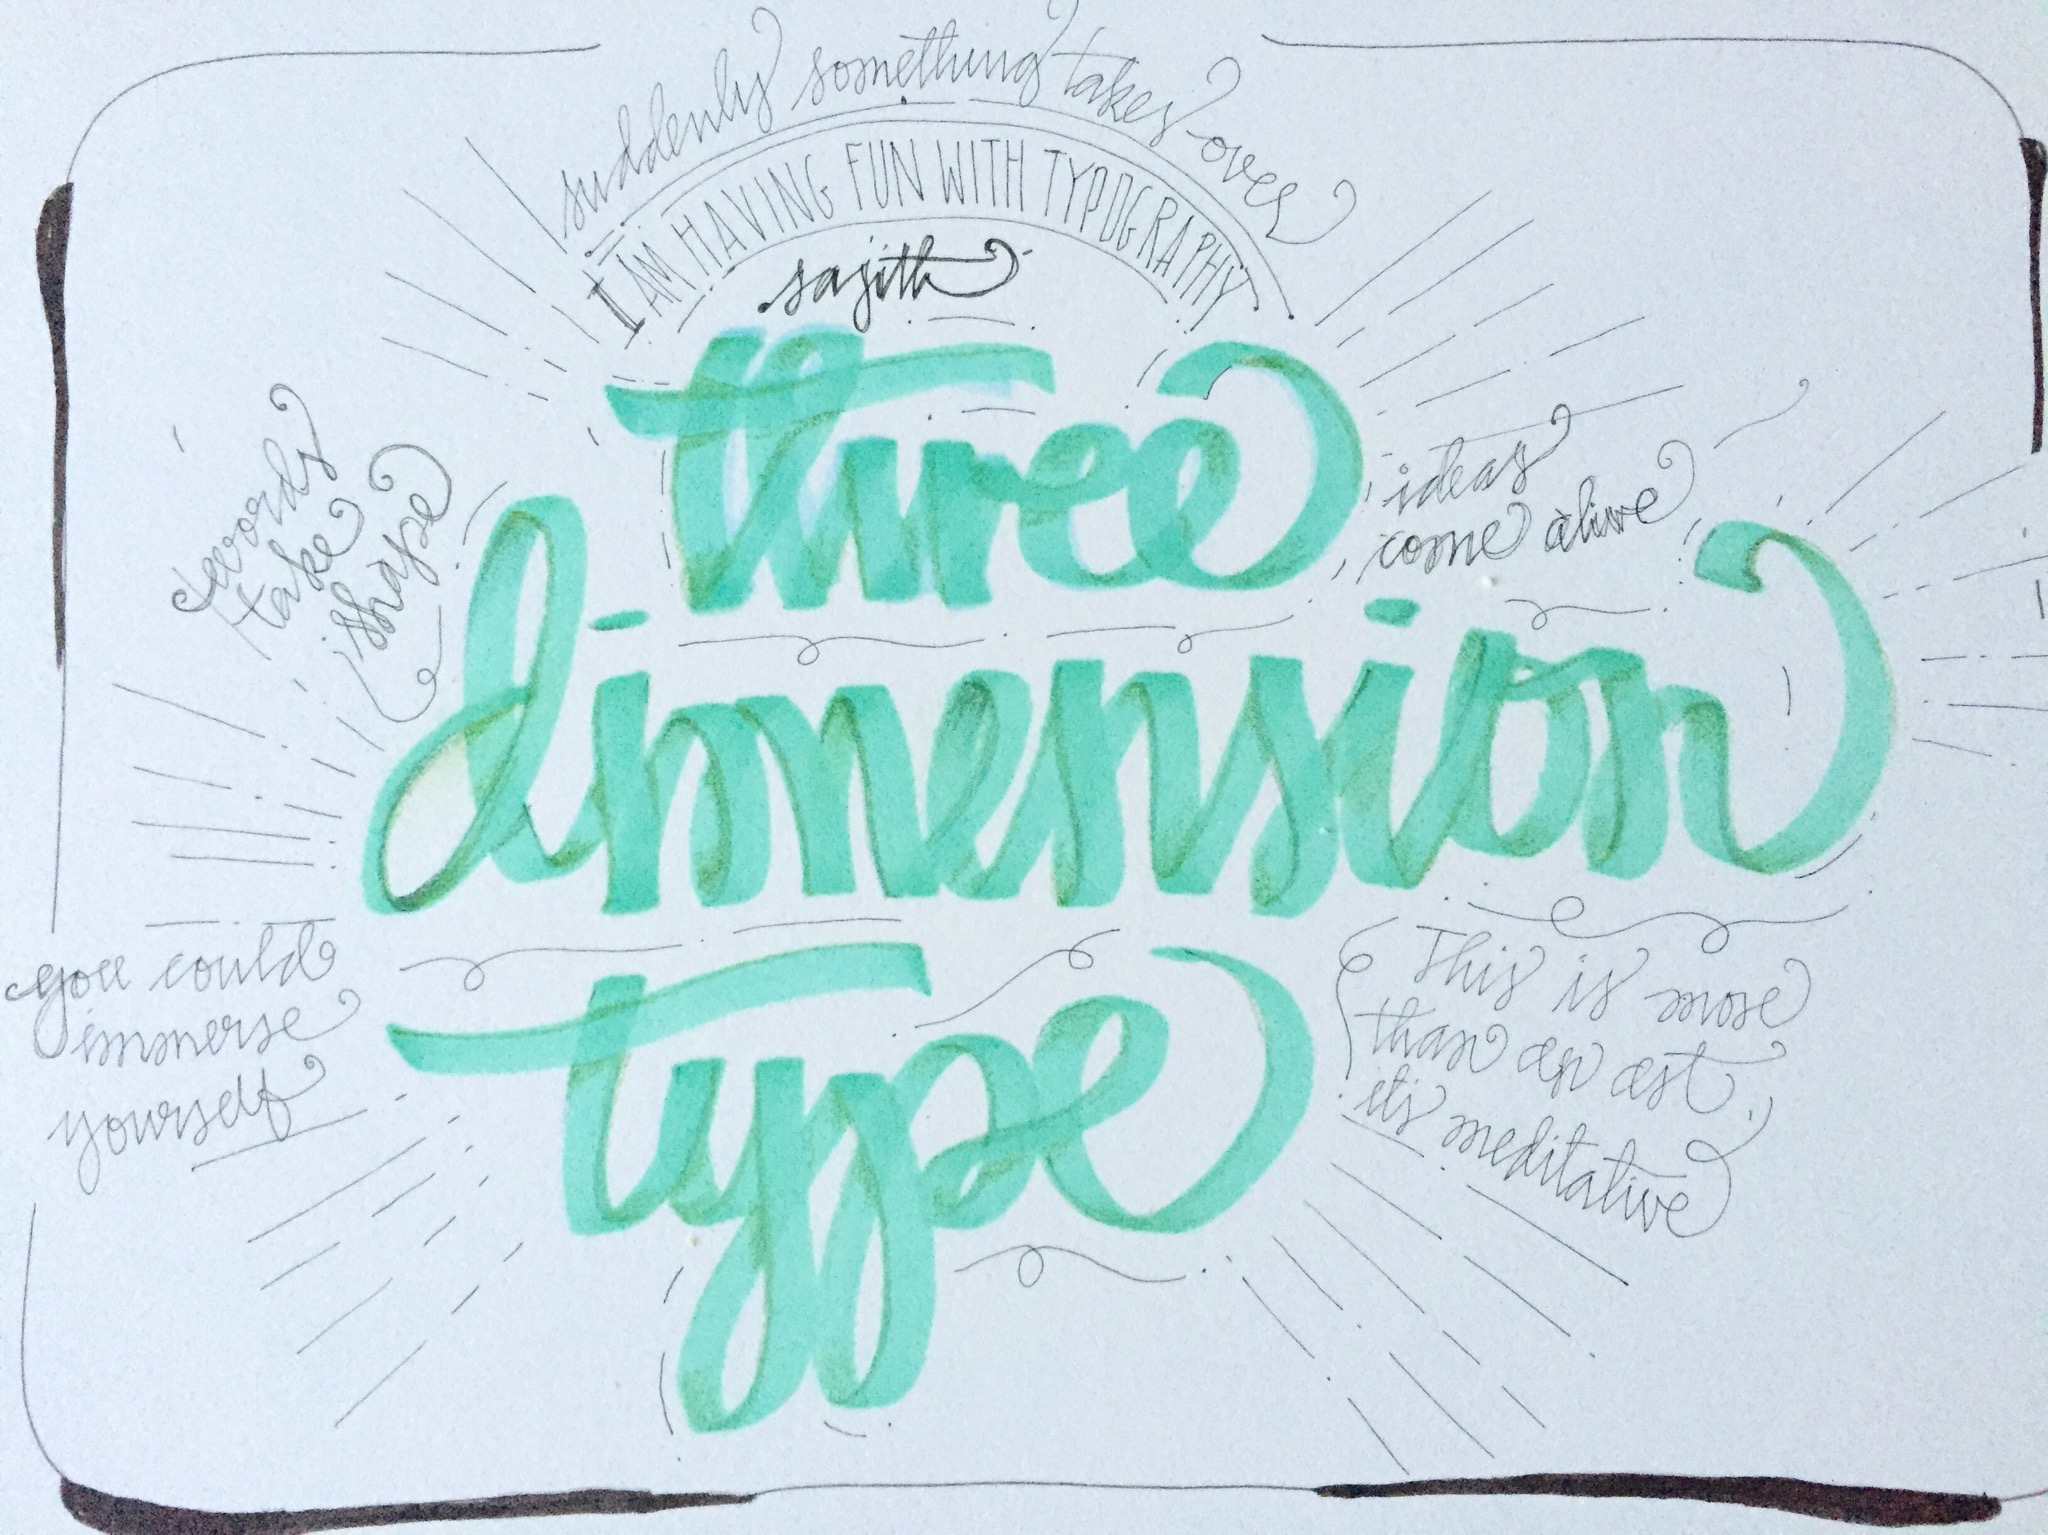 suddenly something takes over
I AM HAVING FUN WITH TYPOGRAPHY
sajith
three
dimension
type
words
take
shape
ideas
come alive
you could
immerse
yourself
This is more
than an art.
it's meditative